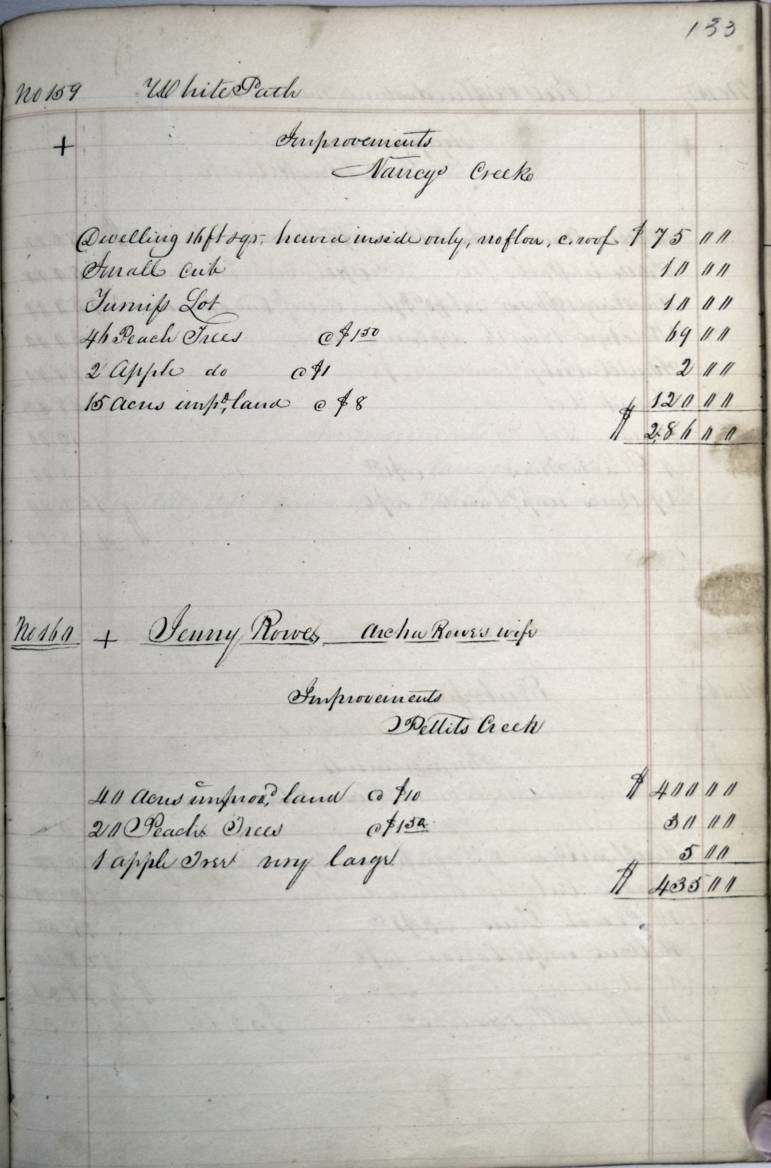 133
No 159 White Path
+ Improvements
Nancys Creek
Dwelling 16ft sqr. hewd inside only, no floor, c. roof $ 75 00
Small crib 10 00
Turnip Lot 10 00
46 Peach Trees @ $1 50 69 00
2 Apple do @ $1 2 00
15 Acres impd. land @ $8 120 00
$ 286 00
No 160 + Jenny Rowe, Archa Rowes wife
Improvements
Pettits Creek
40 Acres improvd. land @ $10 $ 400 00
20 Peach Trees @ $1 50 30 00
1 apple Tree very large 5 00
$ 435 00